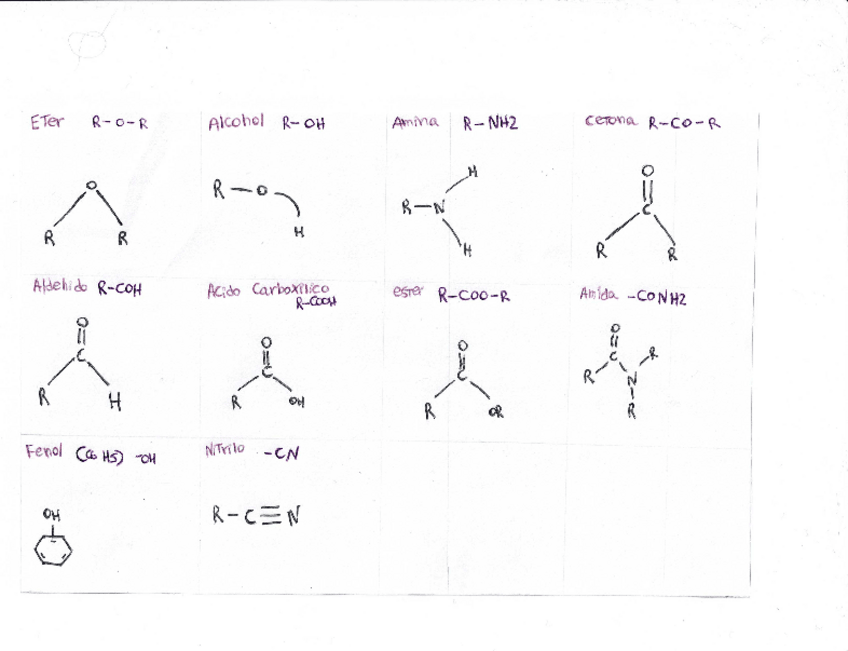 ETer R-O-R
Alcohol R-OH
Amina R-NH2
Cetona R-CO-R
O
R R
R-O
H
H
R-N
H
O
C
R R
Aldehido R-COH
Acido Carboxílico
R-COOH
ester R-COO-R
Amida -CONH2
O
C
R H
O
C
R OH
O
C
R OR
O
C R
R N
R
Fenol (C6H5) -OH
Nitrilo -CN
OH
R-C≡N